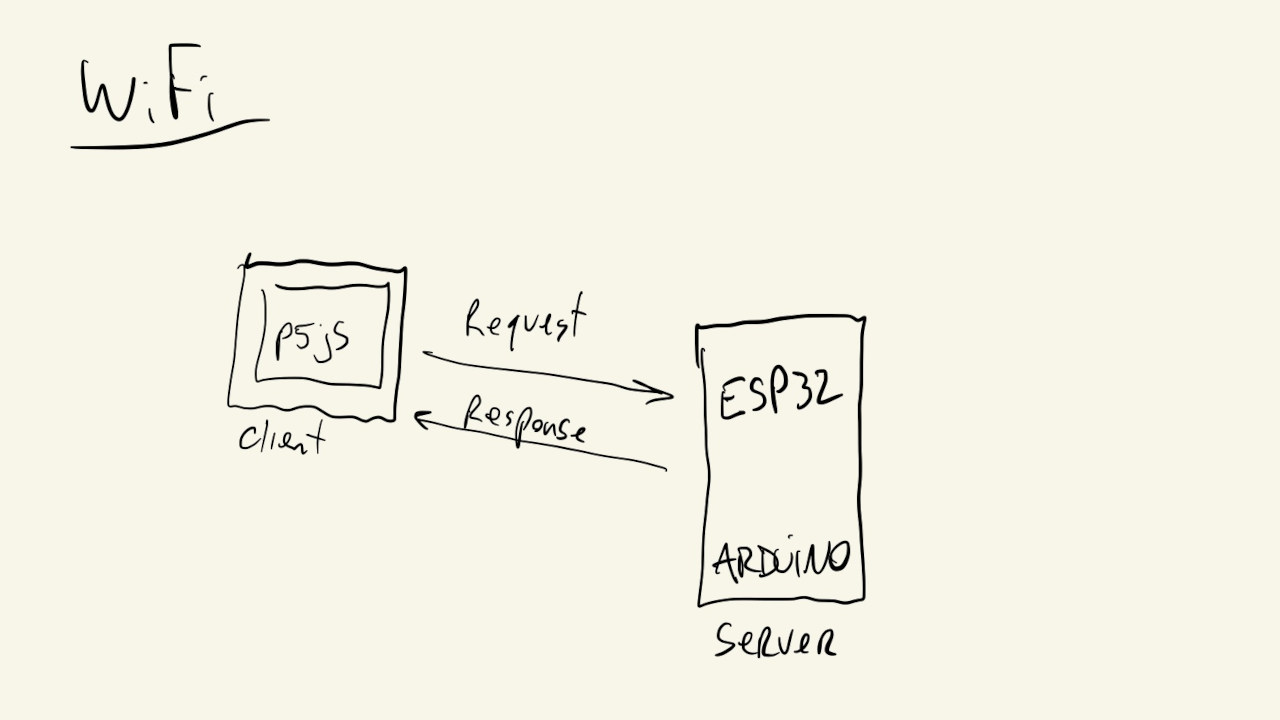 WiFi
p5js
Client
Request
Response
ESP32
ARDUiNO
SeRVeR